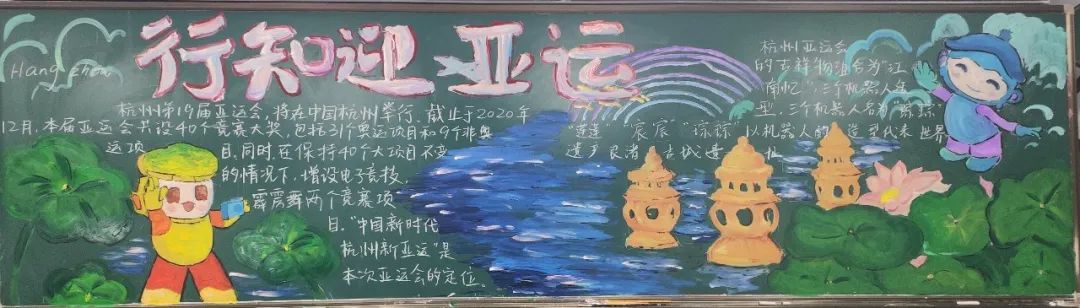 行知迎亚运
Hang zhou
杭州第19届亚运会,将在中国杭州举行.截止于2020年
12月,本届亚运会共设40个竞赛大奖,包括31个奥运项目和9个非奥
运项目.同时,在保持40个大项目不变
的情况下,增设电子竞技,
霹雳舞两个竞赛项
目."中国新时代
杭州新亚运"是
本次亚运会的定位.
杭州亚运会
的吉祥物组合为"江
南忆",三个机器人造
型,三个机器人名为"琮琮"
"莲莲""宸宸""琮琮"以机器人的造型代表世界
遗产良渚古城遗址